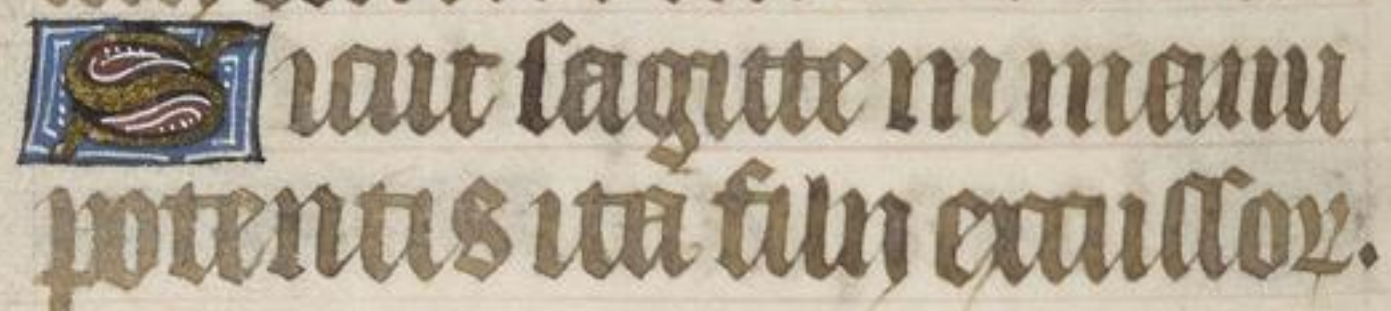 Sicut sagitte in manu
potentis ita filij excussoꝝ.